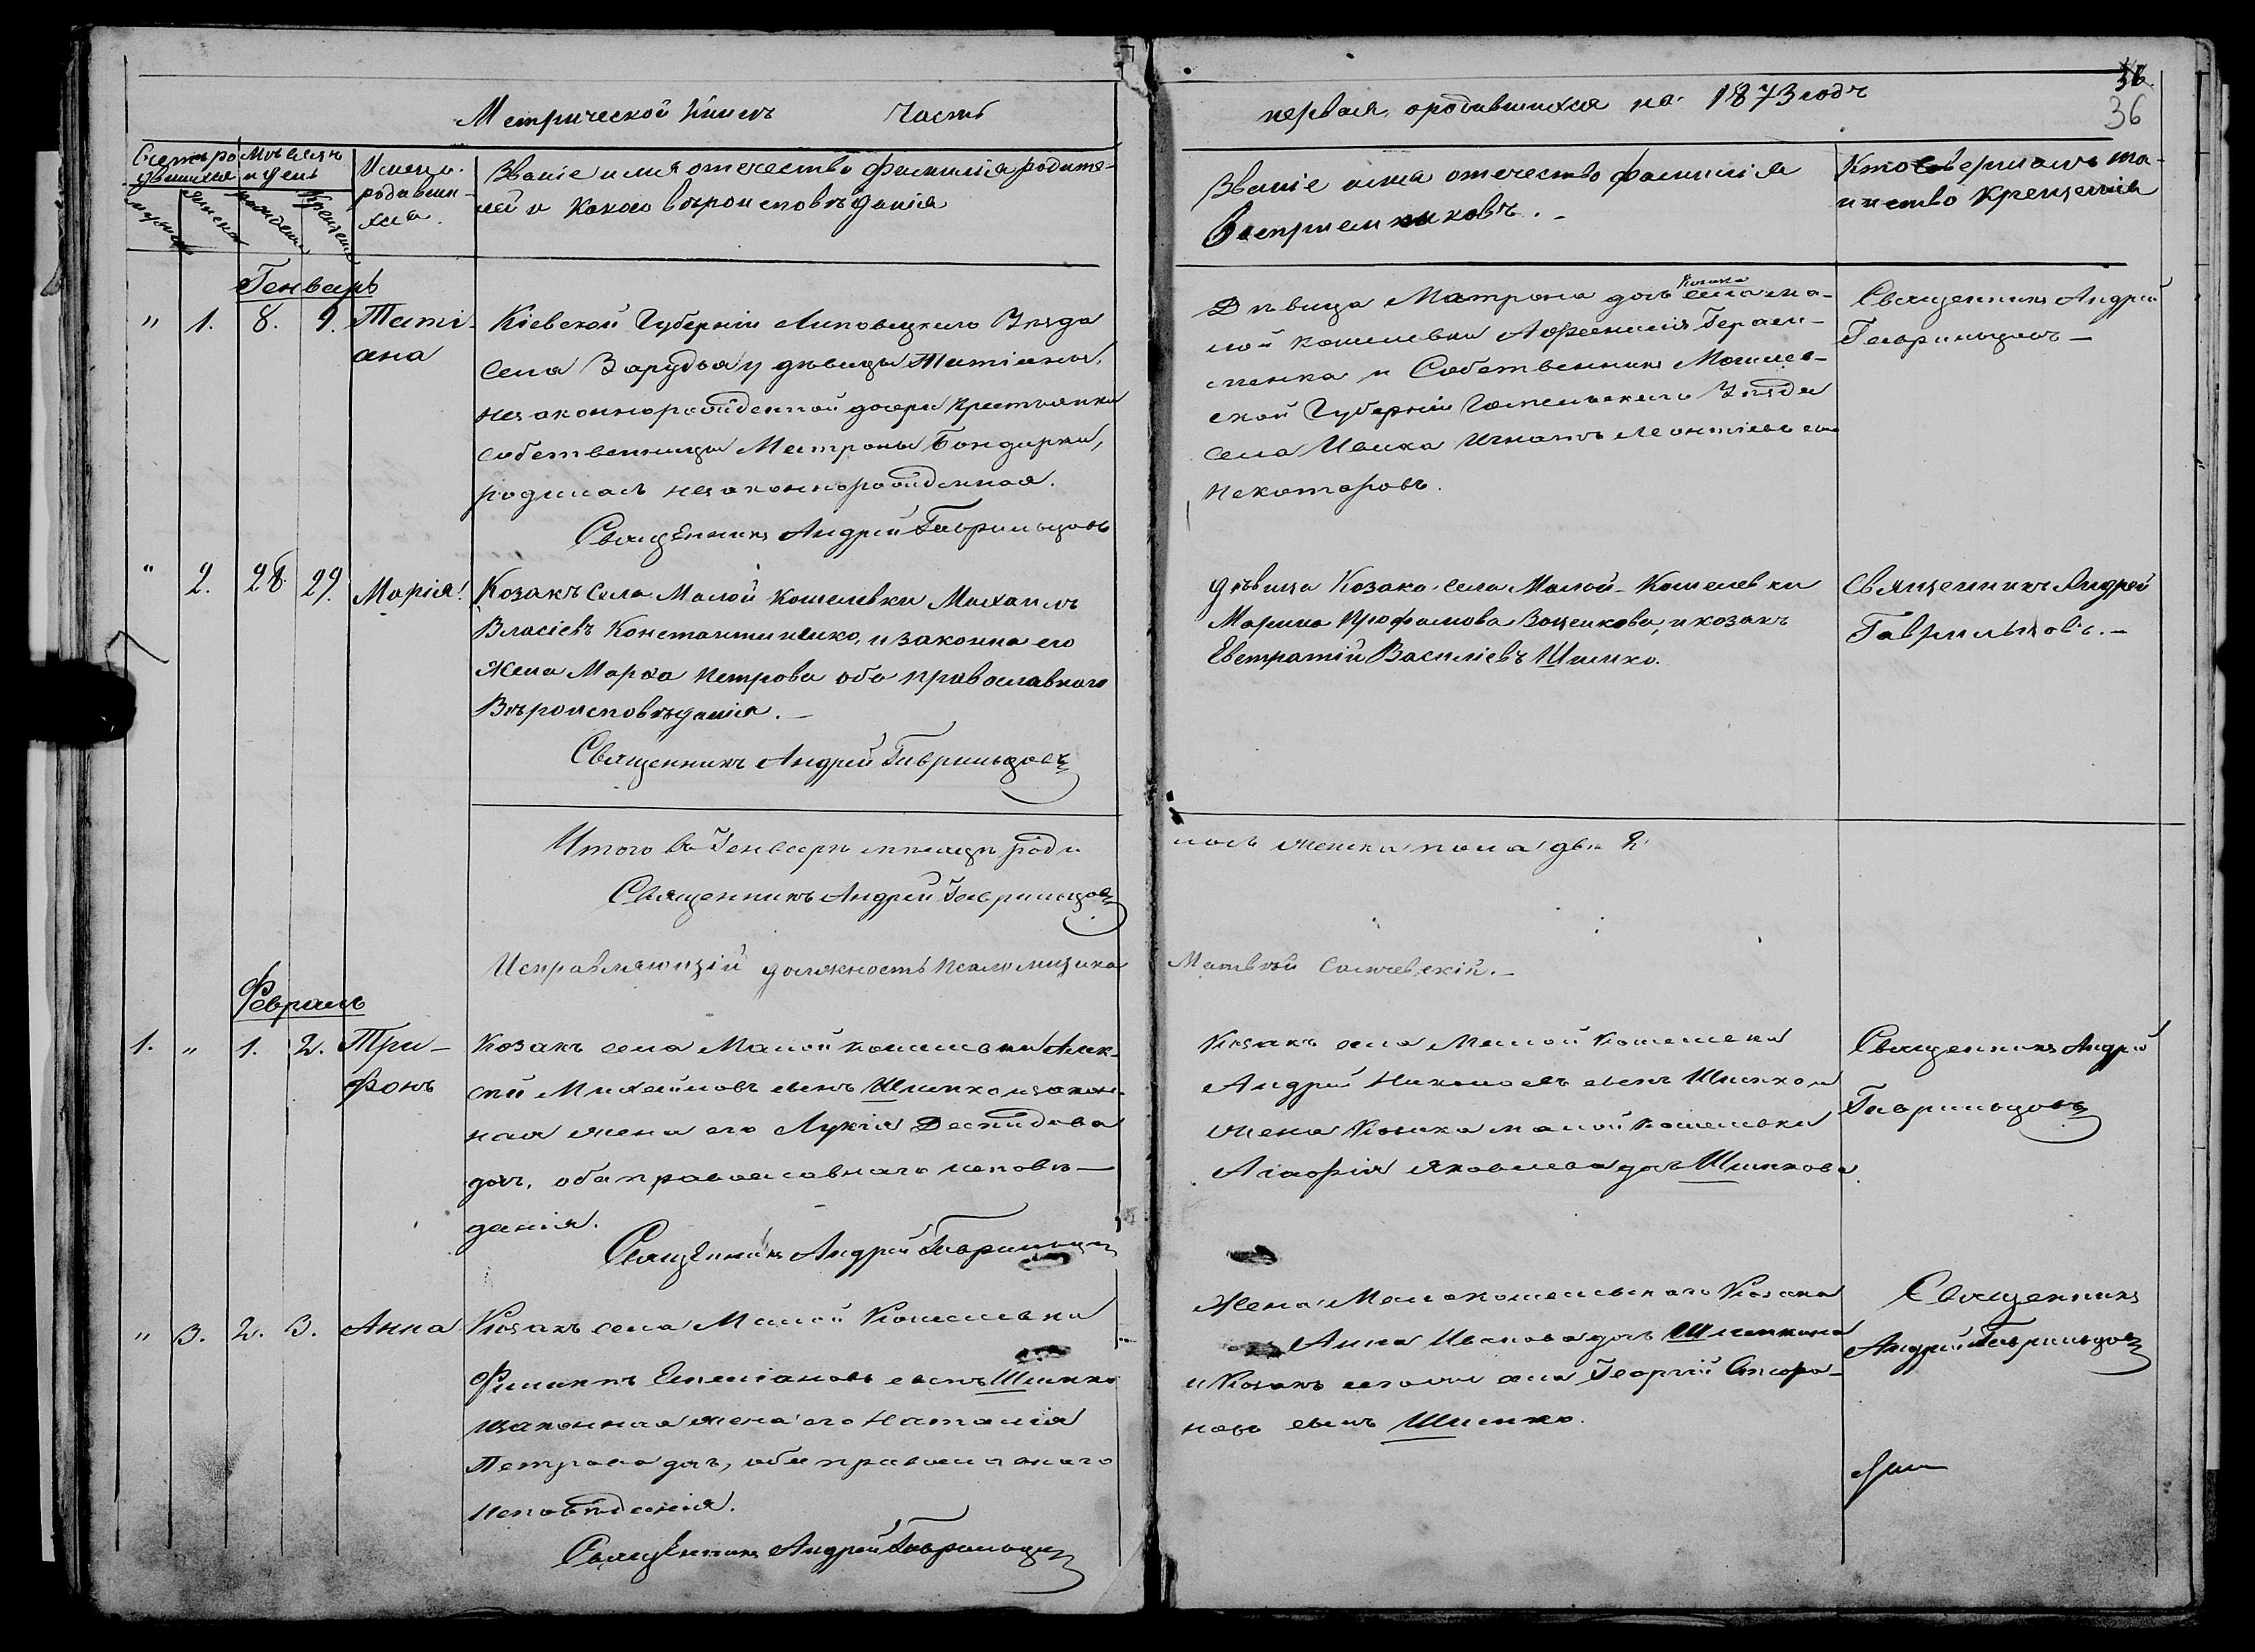 Метрической книги Часть
первая, о родившихся на 1873 годъ
36
36
Счетъ ро- Мѣсяцъ
дившихся и день
мужеска
женска
рожденія
Крещенія
Имена
родивши-
хся.
Званіе имя отечество фамилія родите-
лей и какого вѣроисповѣданія
Званіе имя отечество фамилія
Воспріемниковъ.
Кто совершалъ та-
инство Крещенія
Генварь
" 1. 8. 9. Таті-
ана
Кіевской Губерніи Липовецкаго Уѣзда
Села Зарудья у дѣвицы Татіаны,
незаконнорожденной дочери крестьянки
собственницы Матроны Бондарки,
родилась незаконнорожденная.
Священникъ Андрей Гаврильцовъ
Дѣвица Матрона дочь Козака села Ма-
лой Кошелевки Гераси-
менка и Собственникъ Могилев-
ской Губерніи Гомельскаго Уѣзда
села Игнатъ Леонтіевъ
Некоторовъ.
Священникъ Андрей
Гаврильцовъ
" 2. 28. 29. Марія.
Козакъ села Малой Кошелевки Михаилъ
Власіевъ Константиненко, и законна его
жена Марѳа Петрова оба православнаго
Вѣроисповѣданія.
Священникъ Андрей Гаврильцовъ
дѣвица Козака села Малой-Кошелевки
Марина Трофимова и козакъ
Евстратій Василіевъ Шимко.
Священникъ Андрей
Гаврильцовъ.
Итого въ Генварѣ мѣсяцѣ роди
лось женска пола двѣ 2
Священникъ Андрей Гаврильцовъ
Исправляющій должность псаломщика
Матвѣй
Февраль
1. " 1. 2. Три-
фонъ
Козакъ села Малой Кошелевки Алек-
сѣй Михайловъ сынъ Шимко и закон-
ная жена его Лукія Демидова
доч. оба православнаго исповѣ-
данія.
Священникъ Андрей Гаврильцовъ
Козакъ села Малой Кошелевки
Андрей Николаевъ сынъ Шимко и
жена Козака малой Кошелевки
Агафія Яковлева дочь Шимкова
Священникъ Андрей
Гаврильцовъ
" 3. 2. 3. Анна
Козакъ села Малой Кошелевки
Филиппъ Емеліановъ сынъ Шимко
и законная жена его Наталія
Петрова доч, оба православнаго
Исповѣданія.
Священникъ Андрей Гаврильцовъ
Жена Малокошелевскаго Козака
Анна Иванова дочь Шимкова
и Козакъ села Георгій
новъ сынъ Шимко.
Священникъ
Андрей Гаврильцовъ